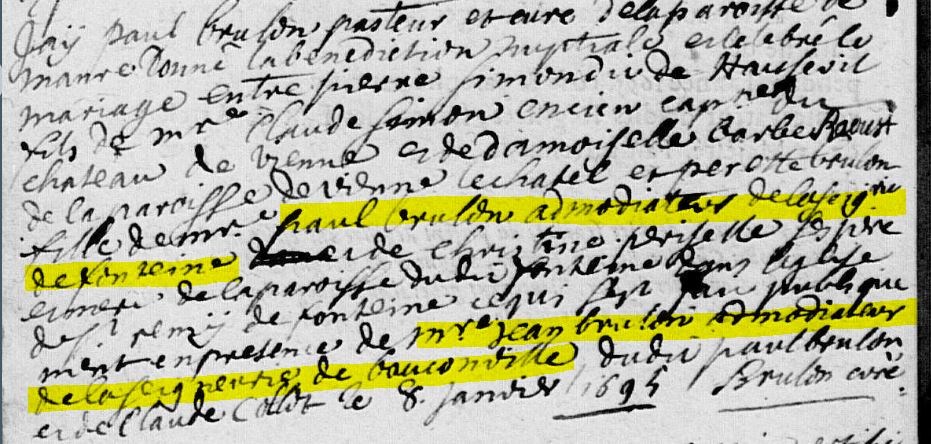 Jay paul brulon pasteur et cure de la paroisse de
manre donné la benediction nuptiale et celebré le
mariage entre pierre simon du de
fils de mre Claude simon encien capne du
chateau de vienne et de damoiselle barbe Raoust
de la paroisse de vienne le chatel et perette brulon
fille de mre paul brulon admodiateur de la seigrie
de fonteine et de christine periselle ses pere
et mere de la paroisse dudit fonteine dans leglise
de st remy de fonteine ce qui sest fait publique
ment en presence de mre jean brulon admodiateur
de la seigneurie de bauconville dudit paul brulon
et de Claude Colot le 8 janvier 1695 Brulon curé